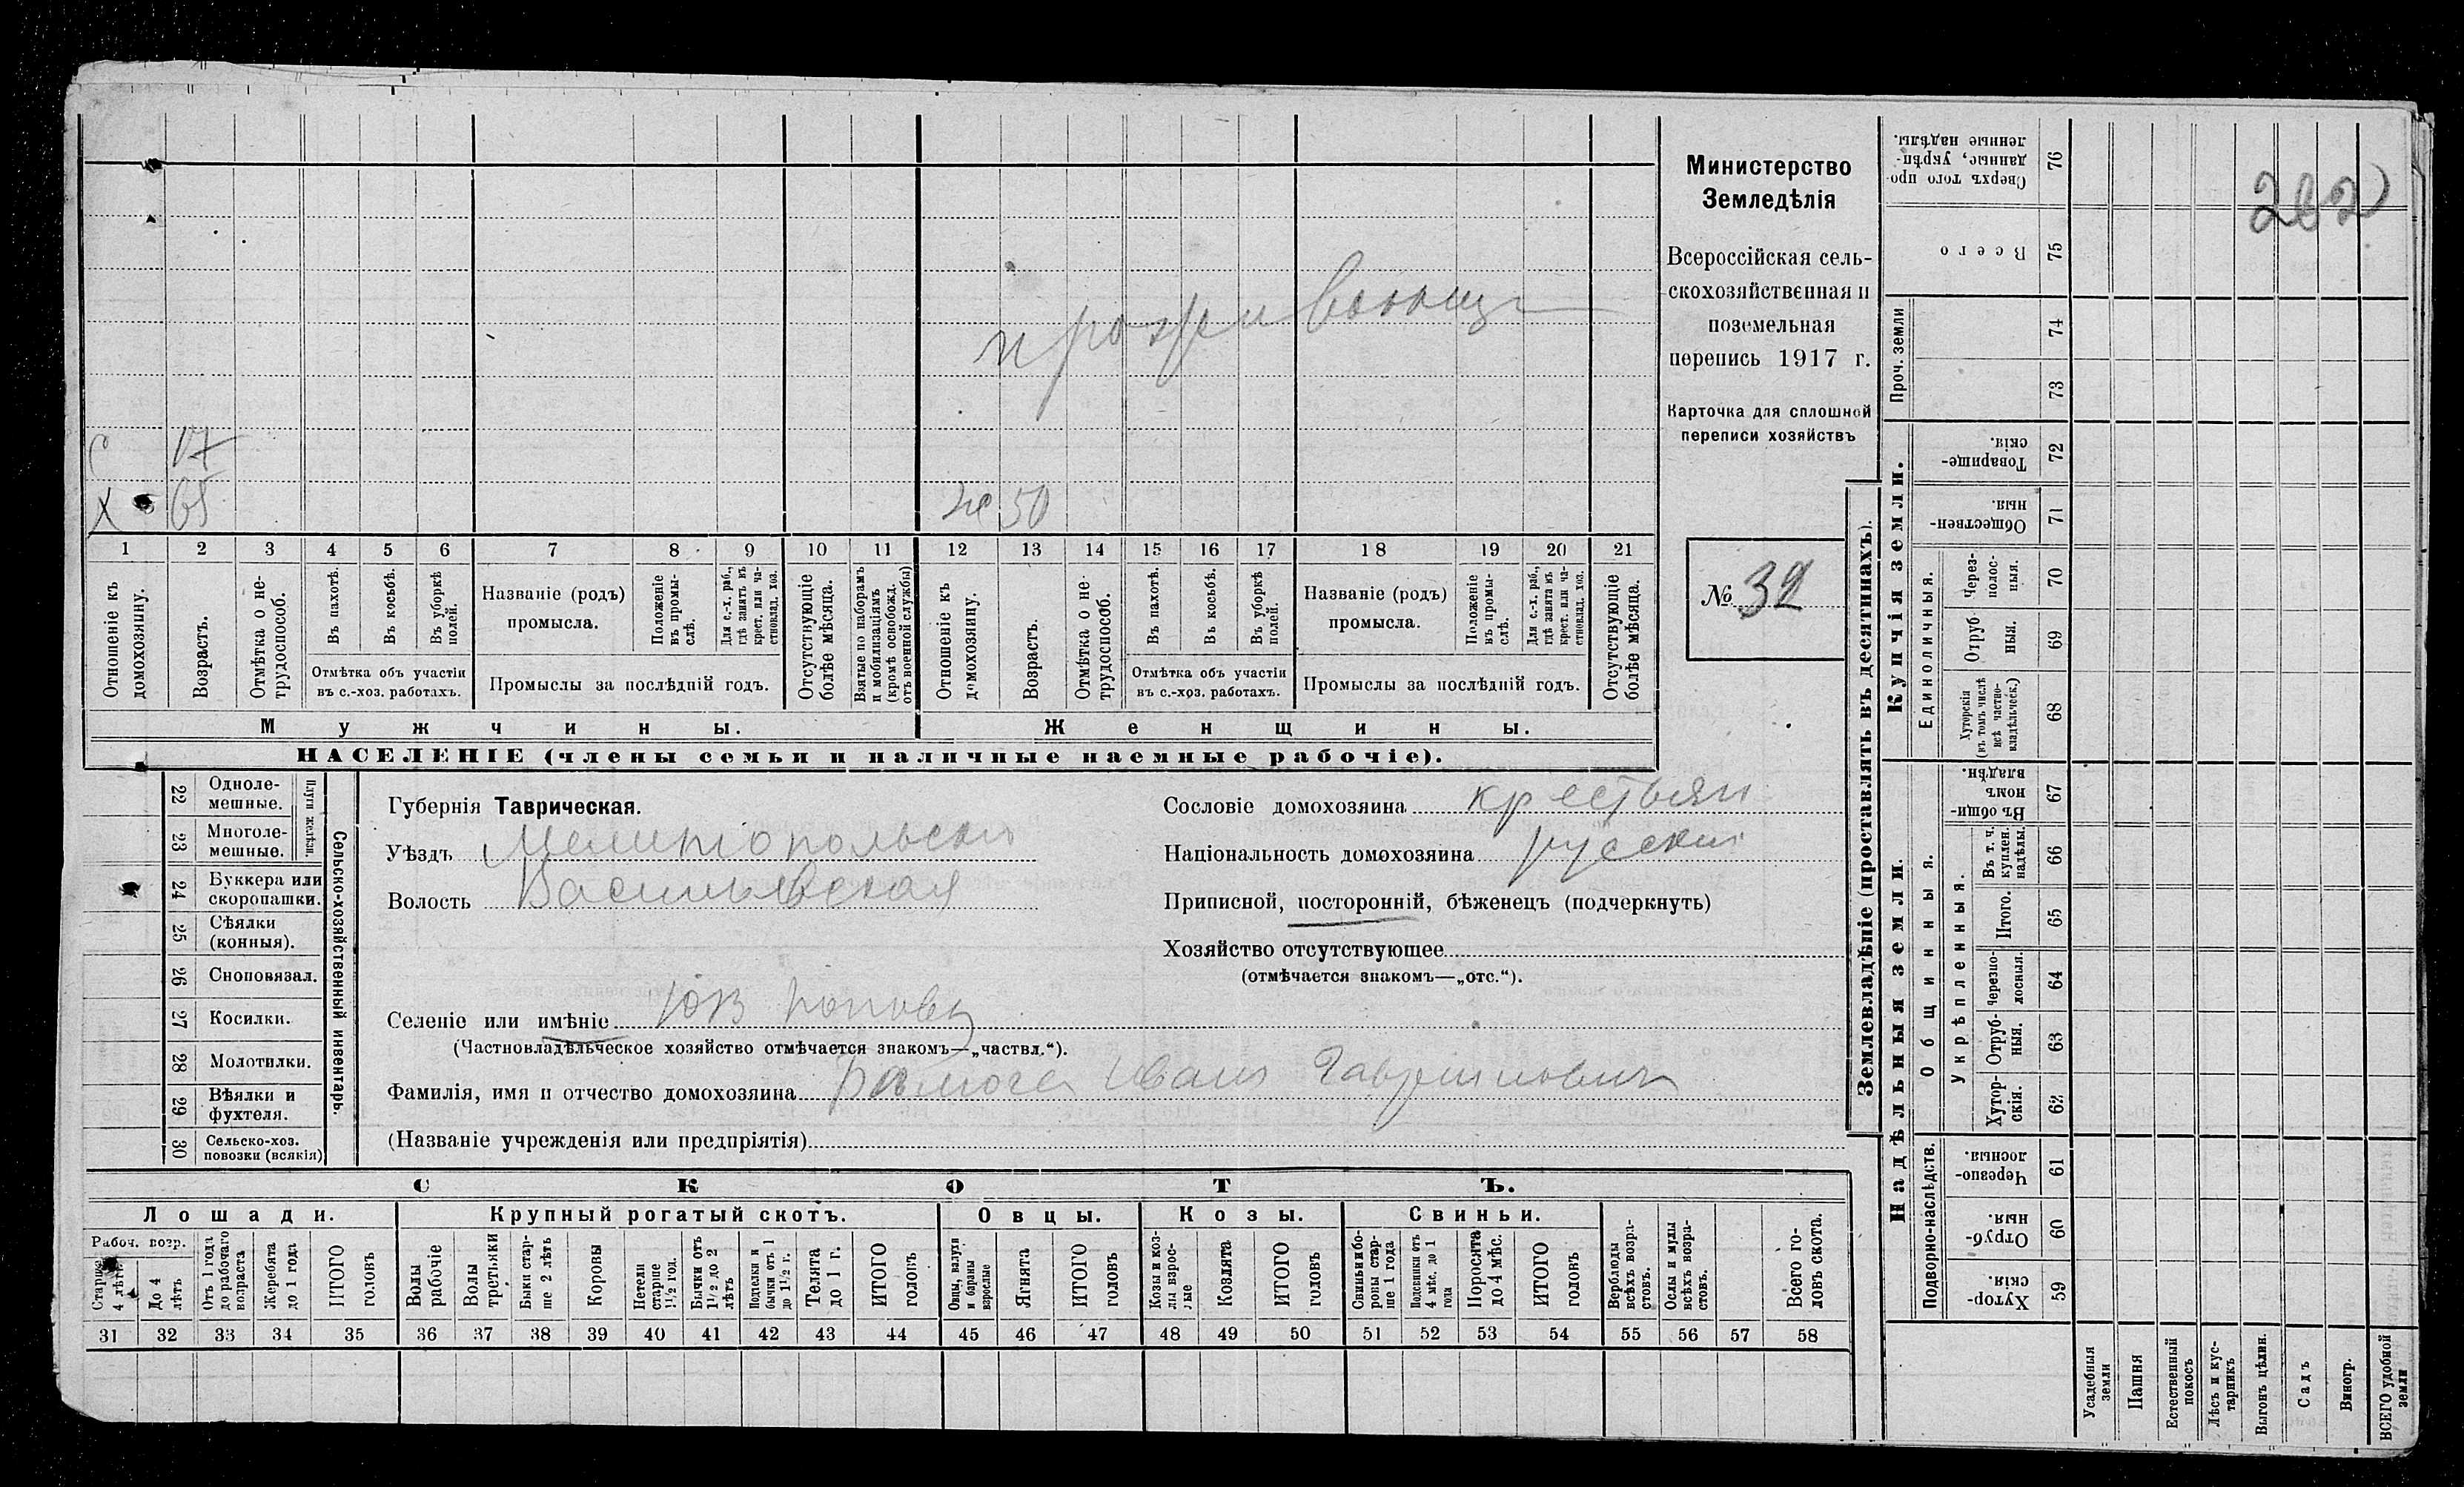 Министерство
Земледѣлія
Всероссійская сель-
скохозяйственная и
поземельная
перепись 1917 г.
Карточка для сплошной
переписи хозяйствъ
№ 32
202
проживающ
С 17
Х 65
же 50
1 2 3 4 5 6 7 8 9 10 11 12 13 14 15 16 17 18 19 20 21
Отношеніе къ домохозяину.
Возрастъ.
Отмѣтка о не-трудоспособ.
Въ пахотѣ.
Въ косьбѣ.
Въ уборкѣ полей.
Отмѣтка объ участіи
въ с.-хоз. работахъ.
Названіе (родъ)
промысла.
Положеніе въ промы-слѣ.
Для с.-х. раб., гдѣ занятъ въ крест. или ча-стновлад. хоз.
Промыслы за послѣдній годъ.
Отсутствующіе болѣе мѣсяца.
Взятые по наборамъ и мобилизаціямъ (кромѣ освобожд. отъ военной службы)
Отношеніе къ домохозяину.
Возрастъ.
Отмѣтка о не-трудоспособ.
Въ пахотѣ.
Въ косьбѣ.
Въ уборкѣ полей.
Отмѣтка объ участіи
въ с.-хоз. работахъ.
Названіе (родъ)
промысла.
Положеніе въ промы-слѣ.
Для с.-х. раб., гдѣ занята въ крест. или ча-стновлад. хоз.
Промыслы за послѣдній годъ.
Отсутствующіе болѣе мѣсяца.
Мужчины.
Женщины.
НАСЕЛЕНІЕ (члены семьи и наличные наемные рабочіе).
22 Одноле-мешные.
23 Многоле-мешные.
Плуги желѣзн.
24 Буккера или скоропашки.
25 Сѣялки (конныя).
26 Сноповязал.
27 Косилки.
28 Молотилки.
29 Вѣялки и фухтеля.
30 Сельско-хоз. повозки (всякія)
Сельско-хозяйственный инвентарь.
Губернія Таврическая.
Уѣздъ Мелитопольскій
Волость Васильевская
Сословіе домохозяина крестьян
Національность домохозяина русский
Приписной, посторонній, бѣженецъ (подчеркнуть)
Хозяйство отсутствующее
(отмѣчается знакомъ—„отс.“).
Селеніе или имѣніе ЮВ Поповъ
(Частновладѣльческое хозяйство отмѣчается знакомъ—„частвл.“).
Фамилія, имя и отчество домохозяина Иванъ Гавриловичъ
(Названіе учрежденія или предпріятія)
СКОТЪ.
Лошади.
Крупный рогатый скотъ.
Овцы.
Козы.
Свиньи.
Рабоч. возр.
Старше 4 лѣтъ
До 4 лѣтъ
Отъ 1 года до рабочаго возраста
Жеребята до 1 года
ИТОГО головъ
Волы рабочіе
Волы третьяки
Быки стар-ше 2 лѣтъ
Коровы
Нетели старше 1½ гол.
Бычки отъ 1½ до 2 лѣтъ
Подтелки и бычки отъ 1 до 1½ г.
Телята до 1 г.
ИТОГО головъ
Овцы, валухи и бараны взрослые
Ягнята
ИТОГО головъ
Козы и коз-лы взрос-лые
Козлята
ИТОГО головъ
Свиньи и бо-ровы стар-ше 1 года
Подсвинки отъ 4 мѣс. до 1 года
Поросята до 4 мѣс.
ИТОГО головъ
Верблюды всѣхъ возра-стовъ.
Ослы и мулы всѣхъ возра-стовъ.
Всего го-ловъ скота.
31 32 33 34 35 36 37 38 39 40 41 42 43 44 45 46 47 48 49 50 51 52 53 54 55 56 57 58
Землевладѣніе (проставлять въ десятинахъ).
Купчія земли.
Надѣльныя земли.
Сверхъ того про-данные, укрѣп-ленные надѣлы. 76
Всего 75
Проч. земли
74
73
Товарище-скія. 72
Обществен-ныя 71
Единоличныя.
Через-полос-ныя. 70
Отруб-ныя. 69
Хуторскія (въ томъ числѣ всѣ частно-владѣльческ.) 68
Общинныя.
Въ общин-номъ владѣн. 67
Укрѣпленныя.
Въ т. ч. куплен. надѣлы. 66
Итого. 65
Черезпо-лосныя. 64
Отруб-ныя. 63
Хутор-скія. 62
Подворно-наслѣдств.
Черезпо-лосныя. 61
Отруб-ныя. 60
Хутор-скія. 59
Усадебныя земли
Пашня
Естественный покосъ
Лѣсъ и кус-тарникъ
Выгонъ цѣлин.
Садъ
Виногр.
ВСЕГО удобной земли